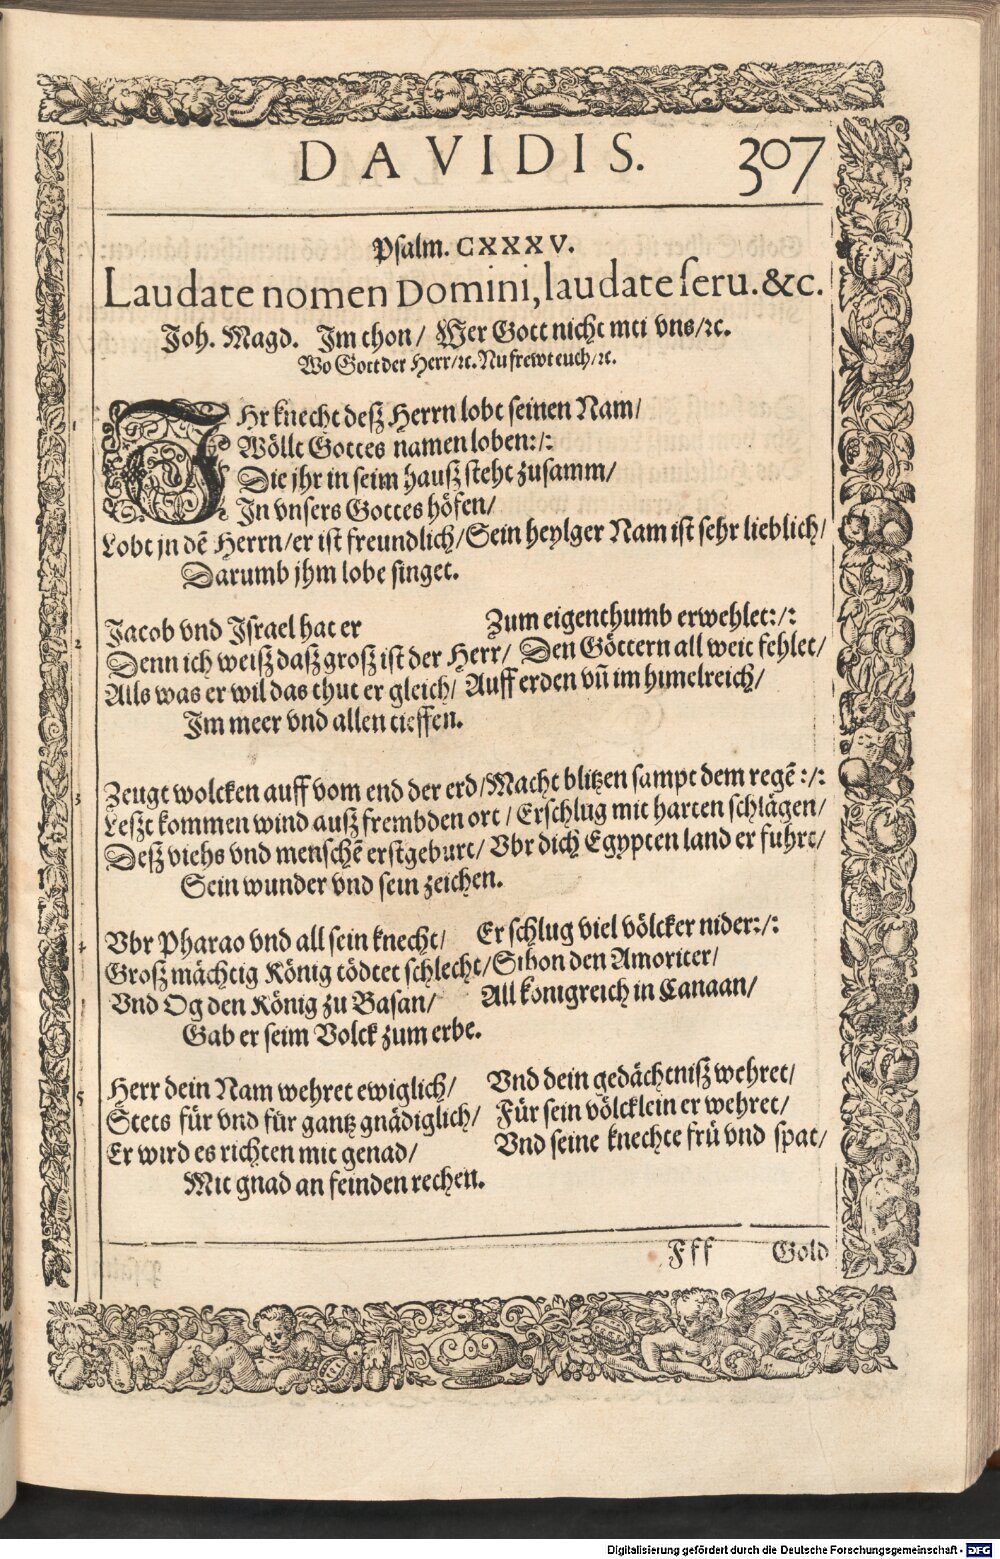 DAVIDIS. 307
Psalm. CXXXV.
Laudate nomen Domini, laudate seru. &c.
Joh. Magd. Im thon / Wer Gott nicht mti vns /ꝛc.
Wo Gott der Herr /ꝛc. Nu frewt euch /ꝛc.
1 IHr knecht desz Herrn lobt seinen Nam /
Wöllt Gottes namen loben:/:
Die jhr in seim hausz steht zusamm /
In vnsers Gottes höfen /
Lobt jn dẽ Herrn / er ist freundlich / Sein heylger Nam ist sehr lieblich /
Darumb jhm lobe singet.
2 Jacob vnd Israel hat er Zum eigenthumb erwehlet:/:
Denn ich weisz dasz grosz ist der Herr / Den Göttern all weit fehlet /
Alls was er wil das thut er gleich / Auff erden vñ im himelreich /
Im meer vnd allen tieffen.
3 Zeugt wolcken auff vom end der erd / Macht blitzen sampt dem regẽ :/:
Leszt kommen wind ausz frembden ort / Erschlug mit harten schlägen /
Desz viehs vnd menschẽ erstgeburt / Vbr dich Egypten land er fuhrt /
Sein wunder vnd sein zeichen.
4 Vbr Pharao vnd all sein knecht / Er schlug viel völcker nider:/:
Grosz mächtig König tödtet schlecht / Sihon den Amoriter /
Vnd Og den König zu Basan / All konigreich in Canaan /
Gab er seim Volck zum erbe.
5 Herr dein Nam wehret ewiglich / Vnd dein gedächtnisz wehret /
Stets für vnd für gantz gnädiglich / Für sein völcklein er wehret /
Er wird es richten mit genad / Vnd seine knechte frü vnd spat /
Mit gnad an feinden rechen.
Fff Gold
Digitalisierung gefördert durch die Deutsche Forschungsgemeinschaft - DFG